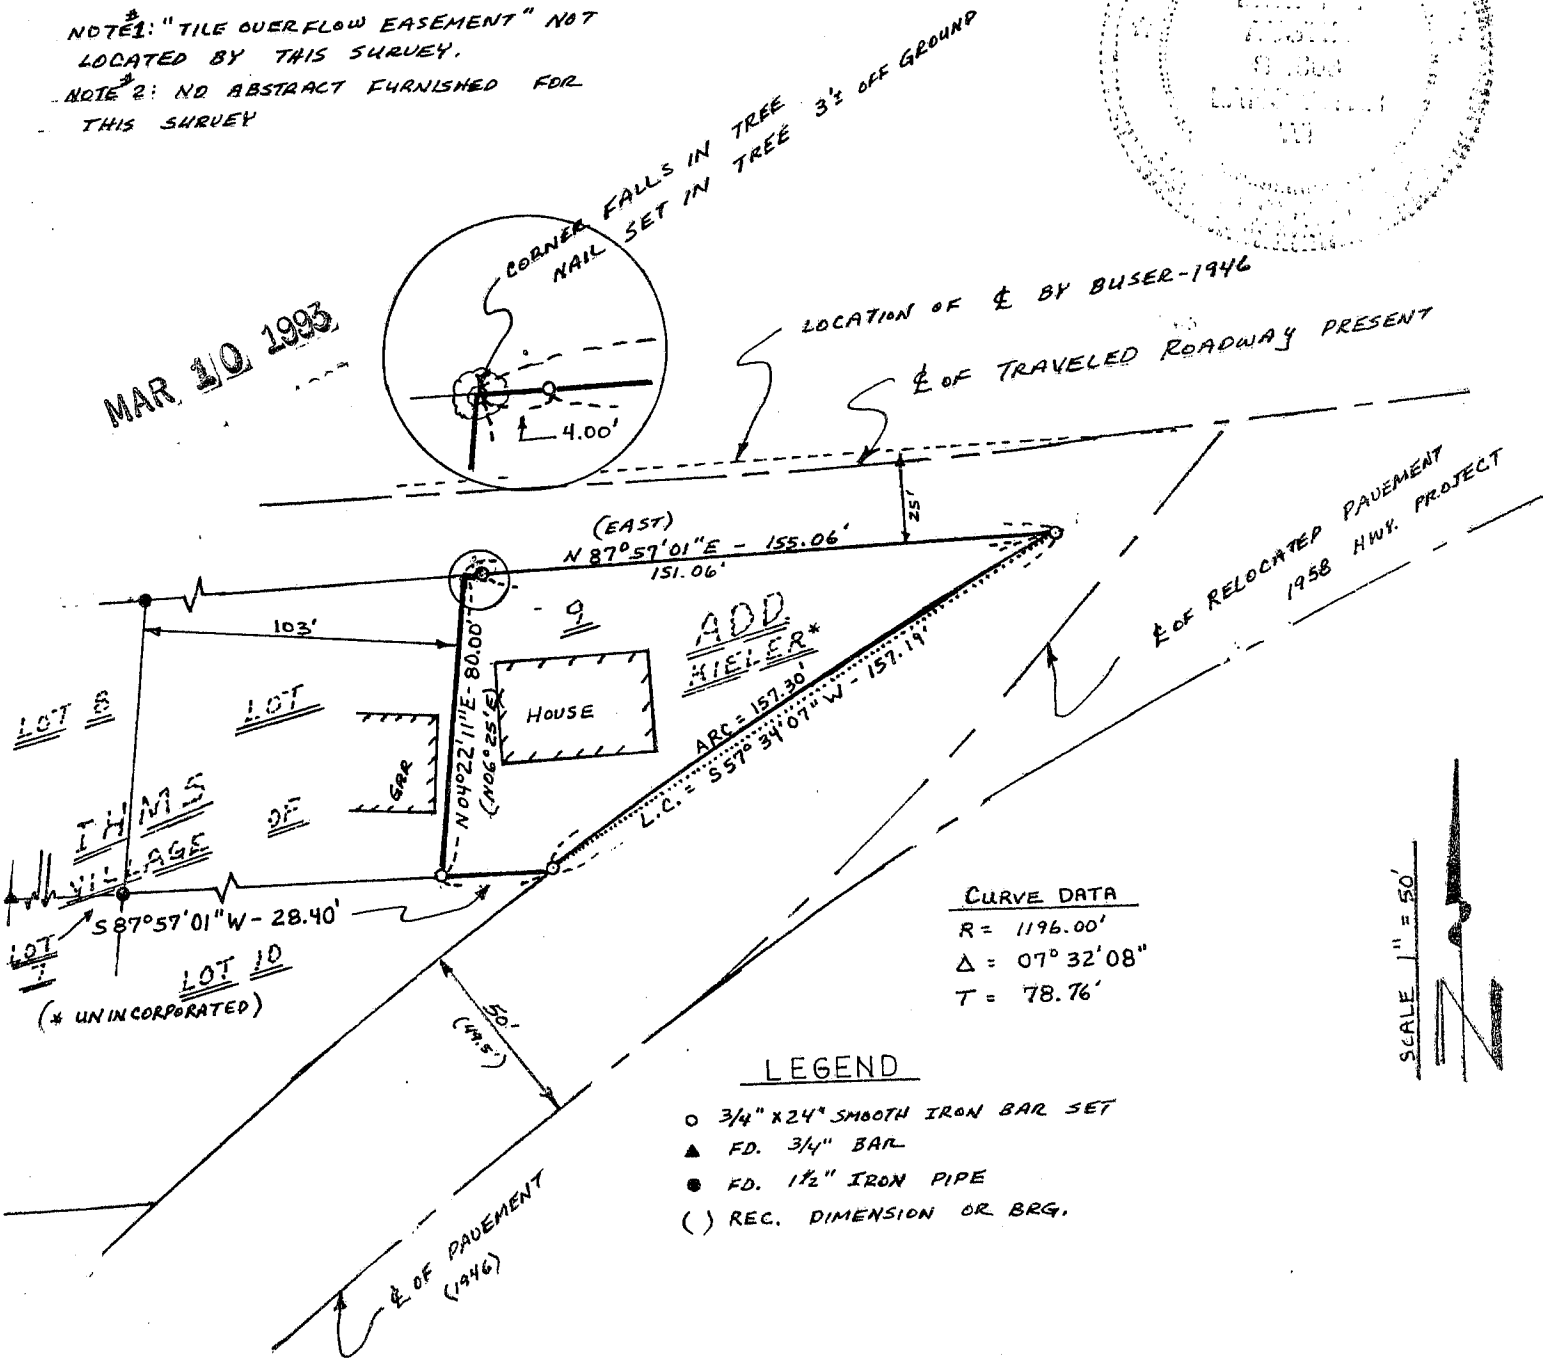 NOTE #1: "TILE OVERFLOW EASEMENT" NOT
LOCATED BY THIS SURVEY.
NOTE #2: NO ABSTRACT FURNISHED FOR
THIS SURVEY
CORNER FALLS IN TREE
NAIL SET IN TREE 3'± OFF GROUND
MAR 10 1993
4.00'
LOCATION OF ℄ BY BUSER-1946
℄ OF TRAVELED ROADWAY PRESENT
25'
(EAST)
N 87°57'01"E - 155.06'
151.06'
℄ OF RELOCATED PAVEMENT
1958 HWY. PROJECT
103'
9
ADD
HIELER*
LOT 8
LOT
GAR
N04°22'11"E - 80.00'
(N06°25'E)
HOUSE
ARC = 157.30'
L.C. = S57°34'07"W - 157.19'
THMS
OF
VILLAGE
S87°57'01"W - 28.40'
LOT
7
LOT 10
(* UNINCORPORATED)
50'
(49.5')
CURVE DATA
R = 1196.00'
Δ = 07°32'08"
T = 78.76'
SCALE 1" = 50'
N
LEGEND
○ 3/4" X 24" SMOOTH IRON BAR SET
▲ FD. 3/4" BAR
● FD. 1 1/2" IRON PIPE
( ) REC. DIMENSION OR BRG.
℄ OF PAVEMENT
(1946)